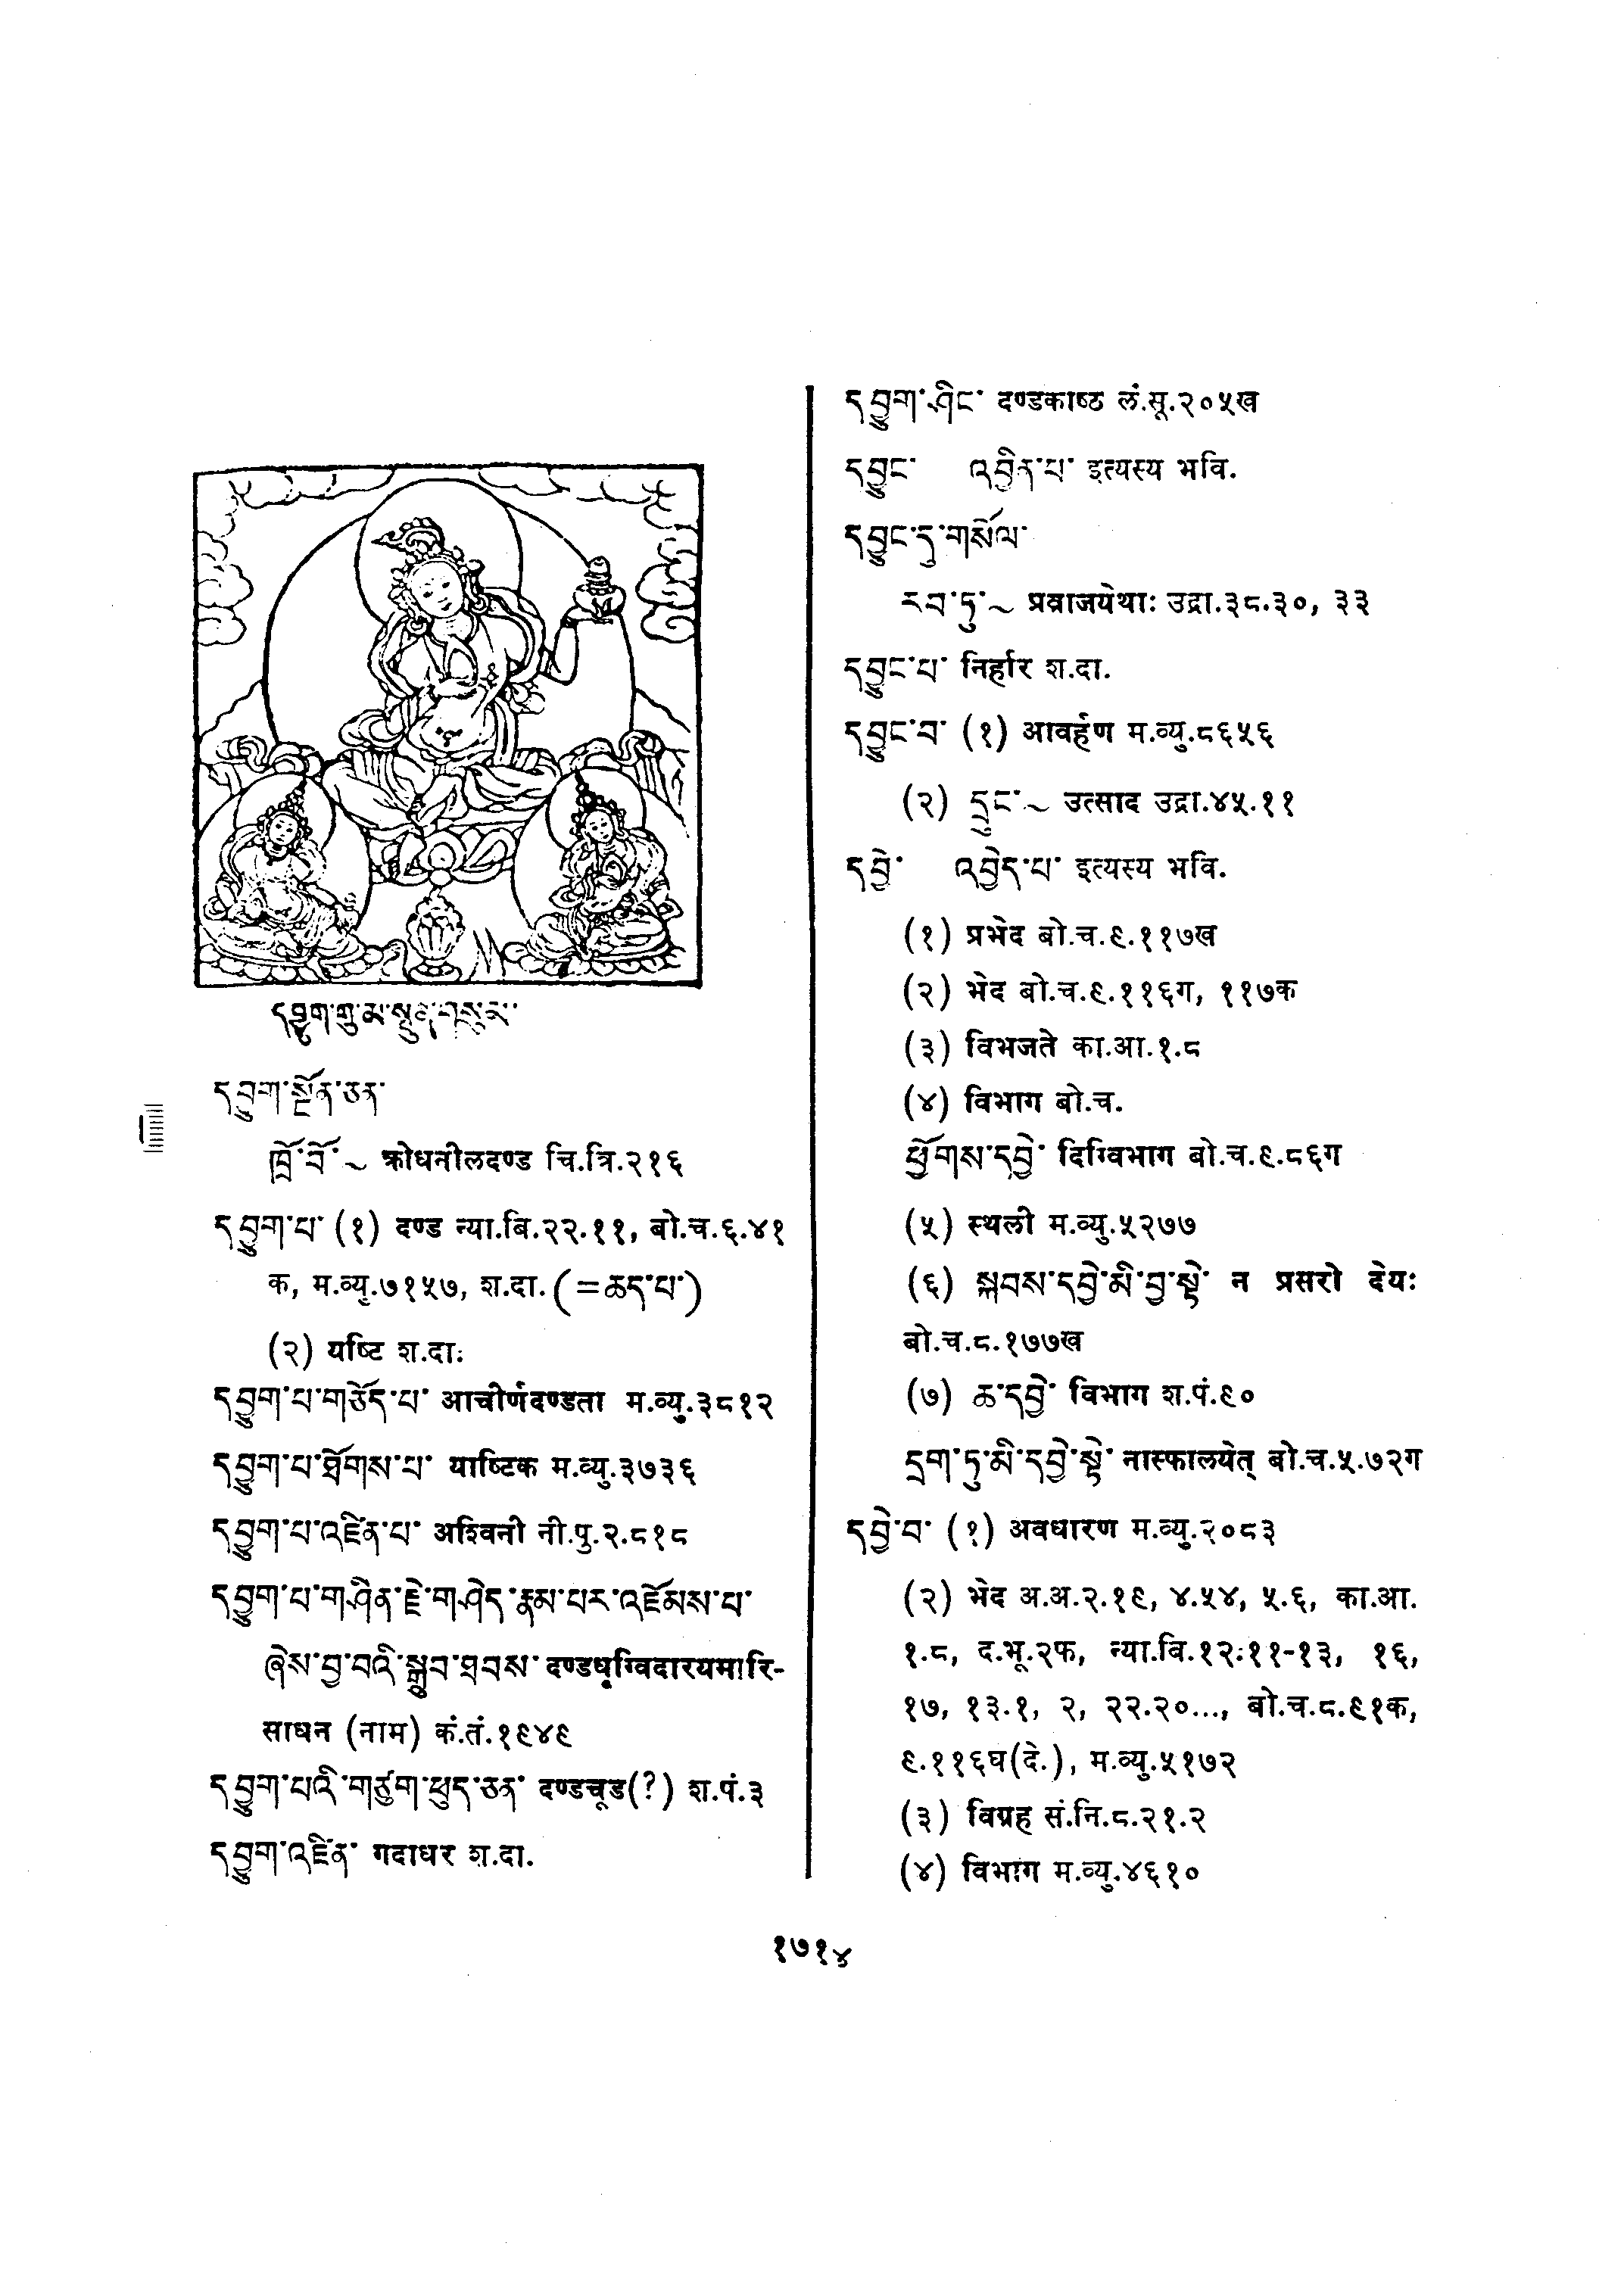 དབྱུག་གུ་མ་སྤུན་བསུར་
དབྱུག་སྔོན་ཅན་
ཁྲོ་བོ་~ क्रोधनीलदण्ड चि.त्रि.२१६
དབྱུག་པ་ (१) दण्ड न्या.बि.२२.११, बो.च.६.४१
क, म.व्यु.७१५७, श.दा. (=ཆད་པ་)
(२) यष्टि श.दा.
དབྱུག་པ་གཅོད་པ་ आचीर्णदण्डता म.व्यु.३८१२
དབྱུག་པ་ཐོགས་པ་ याष्टिक म.व्यु.३७३६
དབྱུག་པ་འཛིན་པ་ अश्विनी नी.पु.२.८१८
དབྱུག་པ་གཤིན་རྗེ་གཤེད་རྣམ་པར་འཇོམས་པ་
ཞེས་བྱ་བའི་སྒྲུབ་ཐབས་ दण्डधृग्विदारयमारि-
साधन (नाम) कं.तं.१९४९
དབྱུག་པའི་གཙུག་ཕུད་ཅན་ दण्डचूड(?) श.पं.३
དབྱུག་འཛིན་ गदाधर श.दा.
དབྱུག་ཤིང་ दण्डकाष्ठ लं.सू.२०५ख
དབྱུང་ འབྱིན་པ་ इत्यस्य भवि.
དབྱུང་དུ་གསོལ་
རབ་ཏུ་~ प्रव्राजयेथाः उद्रा.३८.३०, ३३
དབྱུང་པ་ निर्हार श.दा.
དབྱུང་བ་ (१) आवर्हण म.व्यु.८६५६
(२) དྲུང་~ उत्साद उद्रा.४५.११
དབྱེ་ འབྱེད་པ་ इत्यस्य भवि.
(१) प्रभेद बो.च.९.११७ख
(२) भेद बो.च.९.११६ग, ११७क
(३) विभजते का.आ.१.८
(४) विभाग बो.च.
ཕྱོགས་དབྱེ་ दिग्विभाग बो.च.९.८६ग
(५) स्थली म.व्यु.५२७७
(६) སྐབས་དབྱེ་མི་བྱ་སྟེ་ न प्रसरो देयः
बो.च.८.१७७ख
(७) ཆ་དབྱེ་ विभाग श.पं.९०
དྲག་ཏུ་མི་དབྱེ་སྟེ་ नास्फालयेत् बो.च.५.७२ग
དབྱེ་བ་ (१) अवधारण म.व्यु.२०८३
(२) भेद अ.अ.२.१९, ४.५४, ५.६, का.आ.
१.८, द.भू.२फ, न्या.बि.१२.११-१३, १६,
१७, १३.१, २, २२.२०..., बो.च.८.९१क,
९.११६घ(दे.), म.व्यु.५१७२
(३) विग्रह सं.नि.८.२१.२
(४) विभाग म.व्यु.४६१०
१७१४